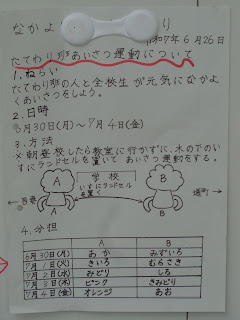 なかよ　り
令和7年6月26日
たてわり班あいさつ運動について
1.ねらい
たてわり班の人と全校生が元気になかよ
くあいさつをしよう。
2.日時
6月30日(月)~7月4日(金)
3.方法
×朝登校したら教室に行かずに、木の下のい
すにランドセルを置いて あいさつ運動をする。
学校
いすにランドセル
を置く
A
B
4.分担
A B
6月30日(月) あか みずいろ
7月1日(火) きいろ むらさき
7月2日(水) みどり しろ
7月3日(木) ピンク きみどり
7月4日(金) オレンジ あお